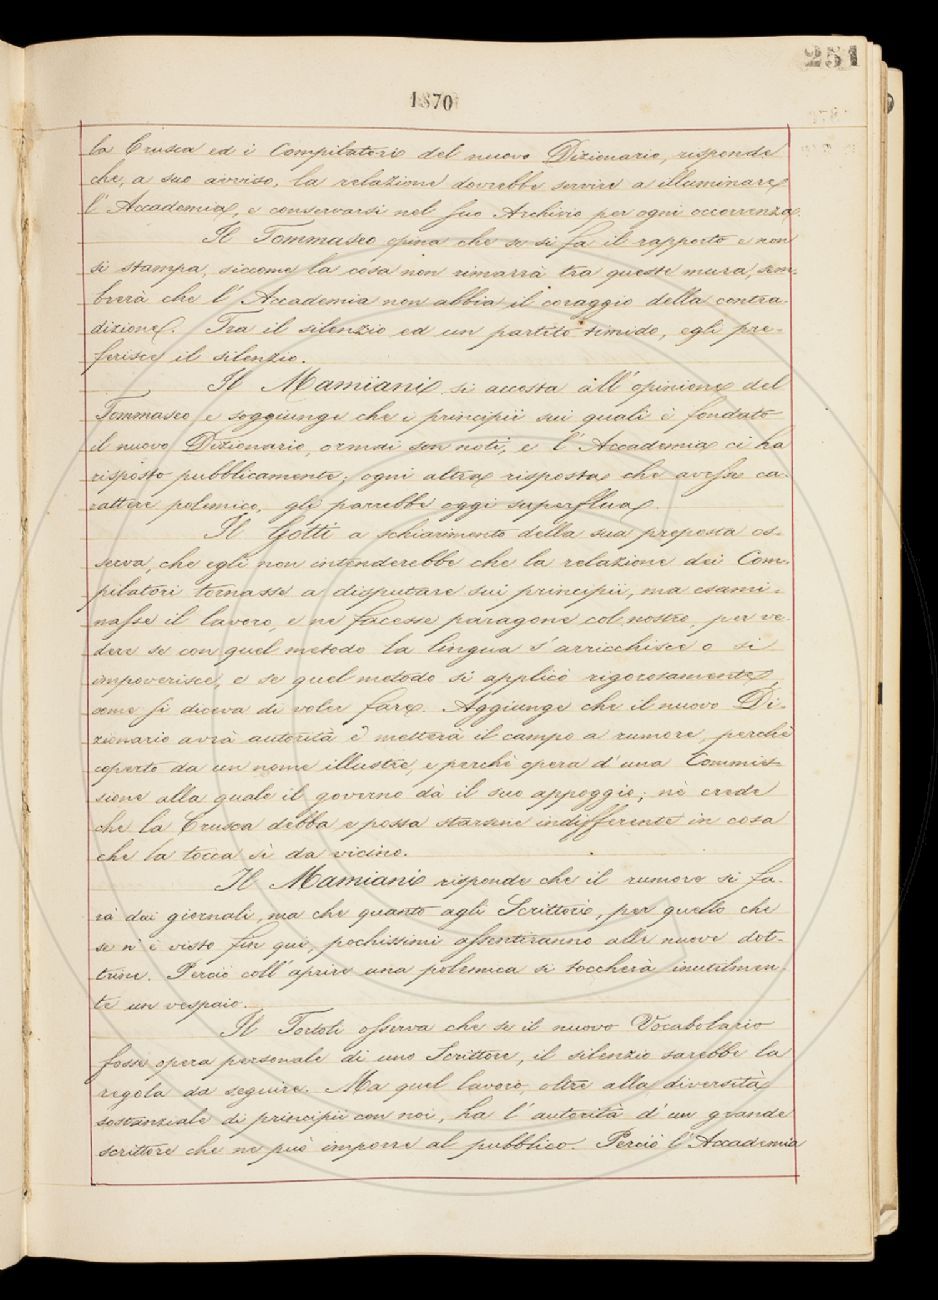 251
1870
la Crusca ed i Compilatori del nuovo Dizionario, risponde
che, a suo avviso, la relazione dovrebbe servire a illuminare
l'Accademia, e conservarsi nel suo Archivio per ogni occorrenza.
Il Tommaseo opina che se si fa il rapporto e non
si stampa, siccome la cosa non rimarrà tra queste mura, sem-
brerà che l'Accademia non abbia il coraggio della contra-
dizione. Tra il silenzio ed un partito timido, egli pre-
ferisce il silenzio.
Il Mamiani si accosta all'opinione del
Tommaseo e soggiunge che i principii sui quali è fondato
il nuovo Dizionario, ormai son noti, e l'Accademia ci ha
risposto pubblicamente; ogni altra risposta che avesse ca-
rattere polemico, gli parrebbe oggi superflua.
Il Gotti a schiarimento della sua proposta os-
serva, che egli non intenderebbe che la relazione dei Com-
pilatori tornasse a disputare sui principii, ma esami-
nasse il lavoro, e ne facesse paragone col nostro, per ve-
dere se con quel metodo la lingua s'arricchisce o si
impoverisce, e se quel metodo si applicò rigorosamente,
come si diceva di voler fare. Aggiunge che il nuovo Di-
zionario avrà autorità e metterà il campo a rumore, perchè
coperto da un nome illustre, e perchè opera d'una Commis-
sione alla quale il governo dà il suo appoggio; nè crede
che la Crusca debba e possa starsene indifferente in cosa
che la tocca sì da vicino.
Il Mamiani risponde che il rumore si fa-
rà dai giornali, ma che quanto agli Scrittori, per quello che
se n'è visto fin qui, pochissimi assentiranno alle nuove dot-
trine. Perciò coll'aprire una polemica si toccherà inutilmen-
te un vespaio.
Il Tortoli osserva che se il nuovo Vocabolario
fosse opera personale di uno Scrittore, il silenzio sarebbe la
regola da seguire. Ma quel lavoro, oltre alla diversità
sostanziale di principii con noi, ha l'autorità d'un grande
scrittore che ne può imporre al pubblico. Perciò l'Accademia